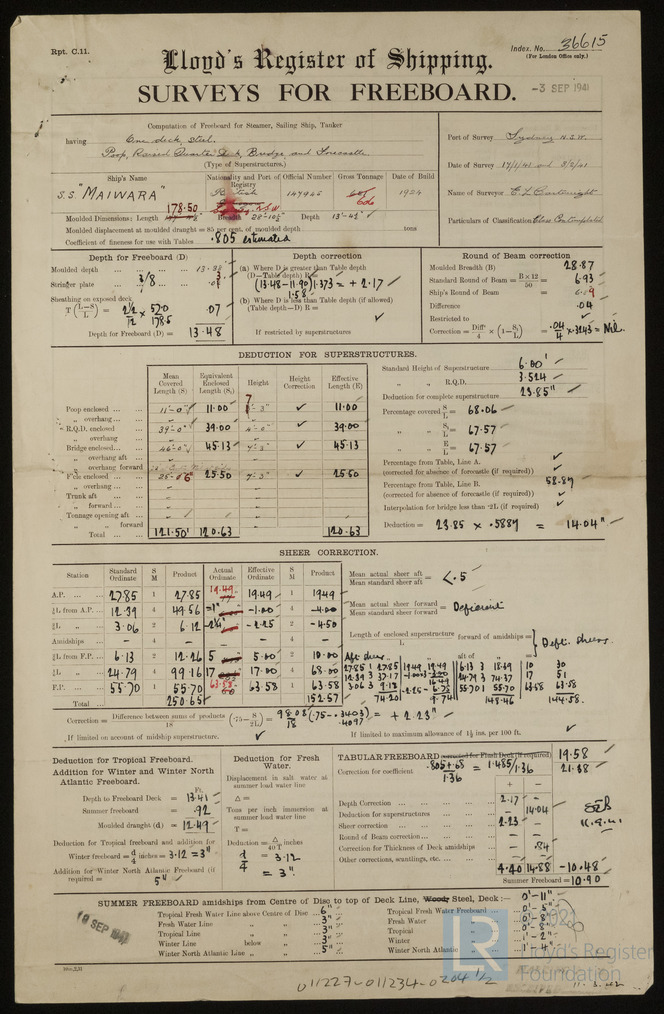 Rpt. C.11.
Index. No. 36615
(For London Office only.)
Lloyd's Register of Shipping.
SURVEYS FOR FREEBOARD.
-3 SEP 1941
Computation of Freeboard for Steamer, Sailing Ship, Tanker
having One deck, steel.
Poop, Raised Quarter Deck, Bridge and Forecastle.
(Type of Superstructures.)
Port of Survey Sydney N.S.W.
Date of Survey 17/1/41 and 3/2/41
Name of Surveyor E L Cartwright
Particulars of Classification Class Contemplated
Ship's Name Nationality and Port of Registry Official Number Gross Tonnage Date of Build
S.S. "MAIWARA" 147945 1924
178.50
Moulded Dimensions: Length Breadth 28'-10½" Depth
Moulded displacement at moulded draught = 85 per cent. of moulded depth tons
Coefficient of fineness for use with Tables .805 estimated
Depth for Freeboard (D)
Moulded depth
Stringer plate 3/8
Sheathing on exposed deck
T (L-S/L) = 2½/12 × 52.0/178.5 .07
Depth for Freeboard (D) = 13.48
Depth correction
(a) Where D is greater than Table depth
(D—Table depth) R =
(13.48-11.90)1.373 = + 2.17
1.58
(b) Where D is less than Table depth (if allowed)
(Table depth—D) R =
If restricted by superstructures
Round of Beam correction
Moulded Breadth (B) 28.87
Standard Round of Beam = B×12/50 = 6.93
Ship's Round of Beam =
Difference .04
Restricted to
Correction = Diff/4 × (1-S₁/L) = .04/4 × .3243 = Nil.
DEDUCTION FOR SUPERSTRUCTURES.
Mean Covered Length (S) Equivalent Enclosed Length (S₁) Height Height Correction Effective Length (E)
Poop enclosed 11'-0" 11.00 7'-3" 11.00
„ overhang
R.Q.D. enclosed 39'-0" 39.00 4'-0" 39.00
„ overhang
Bridge enclosed 46'-0" 45.13 7'-3" 45.13
„ overhang aft
„ overhang forward
F'cle enclosed 25'-6" 25.50 7'-3" 25.50
„ overhang
Trunk aft
„ forward
Tonnage opening aft
„ „ forward
Total 121.50 120.63 120.63
Standard Height of Superstructure 6.00'
„ „ R.Q.D. 3.514
Deduction for complete superstructure 23.85"
Percentage covered S/L = 68.06
„ S₁/L = 67.57
„ E/L = 67.57
Percentage from Table, Line A.
(corrected for absence of forecastle (if required))
Percentage from Table, Line B. 58.87
(corrected for absence of forecastle (if required))
Interpolation for bridge less than ·2L (if required)
Deduction = 23.85 × .5887 = 14.04"
SHEER CORRECTION.
Station Standard Ordinate S M Product Actual Ordinate Effective Ordinate S M Product
A.P. 27.85 1 27.85 19.49 19.49 1 19.49
⅙L from A.P. 12.39 4 49.56 -1" -1.00 4 -4.00
⅓L „ 3.06 2 6.12 -2¼" -2.25 2 -4.50
Amidships – 4 – – – 4 –
⅓L from F.P. 6.13 2 12.26 5 5.00 2 10.00
⅙L „ 24.79 4 99.16 17 17.00 4 68.00
F.P. 55.70 1 55.70 63.58 63.58 1 63.58
Total 250.65 152.57
Mean actual sheer aft / Mean standard sheer aft = <.5
Mean actual sheer forward / Mean standard sheer forward = Deficient
Length of enclosed superstructure / L forward of amidships =
„ aft of „ =
} Deft. sheers.
Aft sheer
27.85 1 27.85 19.49 19.49 6.13 3 18.39 10 30
12.39 3 37.17 24.79 3 74.37 17 51
3.06 3 9.18 -2.25 -6.75 55.70 1 55.70 63.58 63.58
74.20 9.74 148.46 144.58
Correction = Difference between sums of products/18 (·75-S/2L) = 98.08/18 (.75-.3403) = + 2.23"
.4097
If limited on account of midship superstructure.
If limited to maximum allowance of 1½ ins. per 100 ft.
Deduction for Tropical Freeboard.
Addition for Winter and Winter North Atlantic Freeboard.
Ft.
Depth to Freeboard Deck = 13.41
Summer freeboard = .92
Moulded draught (d) = 12.49
Deduction for Tropical freeboard and addition for
Winter freeboard = d/4 inches = 3.12 = 3"
Addition for Winter North Atlantic Freeboard (if required = 5"
Deduction for Fresh Water.
Displacement in salt water at summer load water line
Δ =
Tons per inch immersion at summer load water line
T =
Deduction = Δ/40T inches
d/4 = 3.12
= 3".
TABULAR FREEBOARD corrected for Flush Deck (if required) 19.58
Correction for coefficient .805+.68/1.36 = 1.485/1.36 21.38
+ —
Depth Correction 2.17 —
Deduction for superstructures — 14.04
Sheer correction 2.23 —
Round of Beam correction — —
Correction for Thickness of Deck amidships — .84
Other corrections, scantlings, etc. — —
4.40 14.88 -10.48
Summer Freeboard = 10.90
SUMMER FREEBOARD amidships from Centre of Disc to top of Deck Line, Wood, Steel, Deck:— 0'-11"
Tropical Fresh Water Line above Centre of Disc 6"
Fresh Water Line „ „ 3"
Tropical Line „ „ 3"
Winter Line below „ 3"
Winter North Atlantic Line „ „ 5"
Tropical Fresh Water Freeboard 0'-5"
Fresh Water „ 0'-8"
Tropical „ 0'-8"
Winter „ 1'-2"
Winter North Atlantic „ 1'-4"
SEP 1941
© 2021
LR
Lloyd's Register
Foundation
011227-011234-0204 1/2